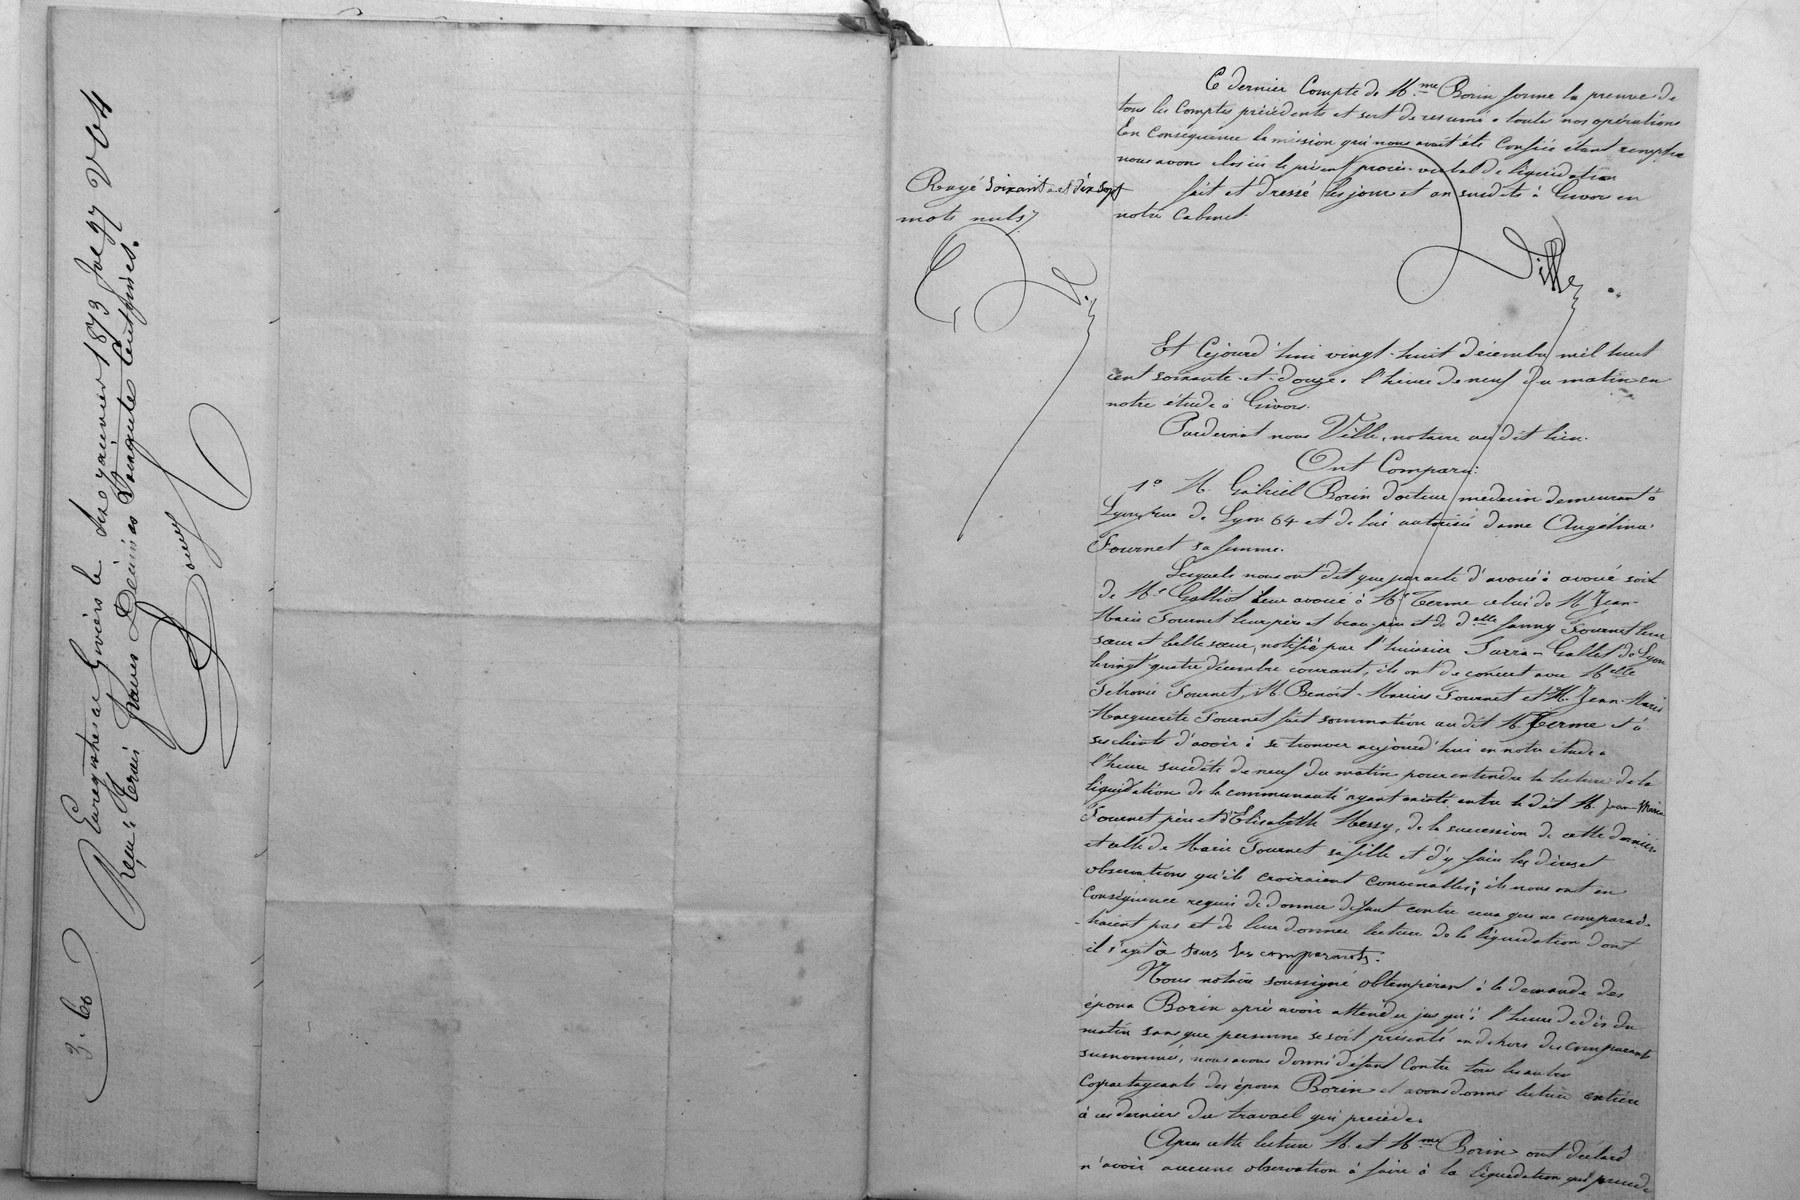 Enregistré à Givors le dix janvier 1873 fol 97 V° C 4
Reçu Trois francs Décimes Soixante Centimes.
3.60
Ce dernier Compte de Mme Borin forme la preuve de
tous les Comptes précédents et sert de resumé à toute nos opérations
En Conséquence la mission qui nous avait été Confiée étant remplie
nous avons clos ici le présent procès-verbal de liquidation
fait et dressé les jour et an susdits à Givors en
notre Cabinet.
Rayé soixante et dix sept
mots nuls
Ville
Et Cejourd'hui vingt-huit décembre mil huit
cent soixante-et-douze à l'heure de neuf du matin en
notre étude à Givors.
Pardevant nous Ville, notaire au dit lieu.
Ont Comparu:
1° M. Gabriel Borin docteur médecin demeurant à
Lyon, rue de Lyon 64 et de lui autorisée dame Angélina
Fournet sa femme.
Lesquels nous ont dit que par acte d'avoué à avoué soit
de Me Galliot leur avoué à Me Terme celui de M. Jean-
Marie Fournet leur père et beau-père et de delle fanny Fournet leur
sœur et belle sœur, notifié par l'huissier Sarra-Gallet de Lyon
le vingt-quatre décembre courant, ils ont de concert avec Melle
Fournet, M. Benoît-Marius Fournet et M. Jean-Marie
Marguerite Fournet fait sommation au dit Me Terme et à
ses clients d'avoir à se trouver aujourd'hui en notre étude à
l'heure susdite de neuf du matin pour entendre la lecture de la
liquidation de la communauté ayant existé entre le dit M. Jean-Marie
Fournet père et d'Elisabeth Messy, de la succession de cette dernière
et celle de Marie Fournet sa fille et d'y faire les dires et
observations qu'ils croiraient convenables; ils nous ont en
Conséquence requis de donner défaut contre ceux qui ne comparaî-
-traient pas et de leur donner lecture de la liquidation dont
il s'agit à tous les comparants.
Nous notaire soussigné obtempérant à la demande des
époux Borin après avoir attendu jusqu'à l'heure de dix du
matin sans que personne se soit présenté en dehors des comparants
susnommés, nous avons donné défaut Contre tous les autres
Copartageants des époux Borin et avons donné lecture entière
à ces derniers du travail qui précède.
Après cette lecture M. et Mme Borin ont déclaré
n'avoir aucune observation à faire à la liquidation qui précède